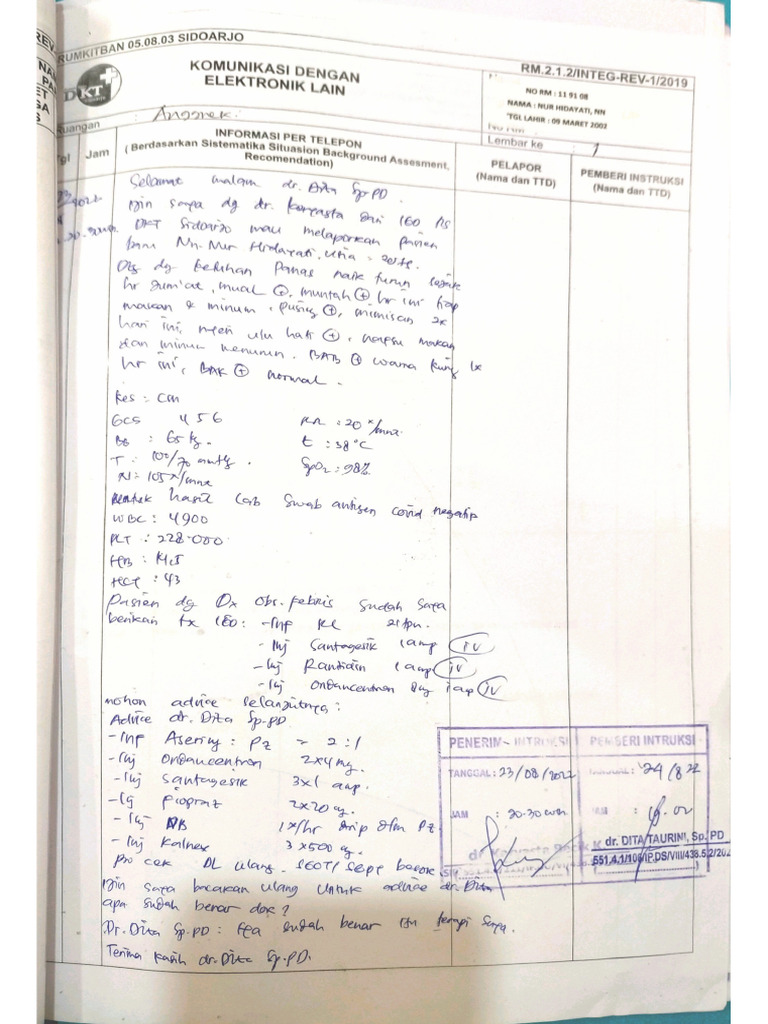 RUMKITBAN 05.08.03 SIDOARJO
RM.2.1.2/INTEG-REV-1/2019
KOMUNIKASI DENGAN
ELEKTRONIK LAIN
DKT
NO RM : 11 91 08
NAMA : NUR HIDAYATI, NN
TGL LAHIR : 09 MARET 2002
Ruangan : Anggrek
Lembar ke : 1
Tgl
Jam
INFORMASI PER TELEPON
( Berdasarkan Sistematika Situasion Background Assesment,
Recomendation)
PELAPOR
(Nama dan TTD)
PEMBERI INSTRUKSI
(Nama dan TTD)
Selamat malam dr. Dita Sp.PD
Izin saya dg dr. dari IGD RS
DKT Sidoarjo mau melaporkan pasien
baru Nn. Nur Hidayati, Usia = 20 th.
dg keluhan Panas naik turun sejak
hr Jum'at, mual ⊕, muntah ⊕ hr ini tiap
makan & minum, pusing ⊕, mimisan 2x
hari ini, nyeri ulu hati ⊕, napsu makan
dan minum menurun. BAB ⊕ warna kuning 1x
hr ini, BAK ⊕ normal.
Kes = CM
GCS 456
RR : 20 x/mnt
BB : 65 kg.
t : 38°C
T : 100/70 mmHg.
SpO2 : 98%
N : 105 x/mnt
hasil Lab Swab antigen covid negatip
WBC : 4900
PLT : 228.000
HB : 14,5
HCT : 43
Pasien dg Dx Obs. febris sudah saya
berikan tx IGD : - Inf RL 21 tpm.
- Inj Santagesik 1 amp IV
- Inj Ranitidin 1 amp IV
- Inj Ondancentron 1 amp IV
mohon advice selanjutnya :
Advice dr. Dita Sp.PD
- Inf Asering : PZ = 2 : 1
- Inj Ondancentron 2x4 mg.
- Inj Santagesik 3x1 amp.
- Inj 2x20 mg.
- Inj 1x/hr drip dlm PZ
- Inj Kalnex 3x500 mg.
Pro cek DL ulang. SGOT/SGPT besok
Izin saya bacakan ulang untuk advice dr. Dita
apa sudah benar dok?
Dr. Dita Sp.PD : iya sudah benar itu terapi saya.
Terima kasih dr. Dita Sp.PD.
PENERIMA INTRUKSI
PEMBERI INTRUKSI
TANGGAL : 23/08/2022
TANGGAL : 24/8 22
JAM : 20.30 WIB
JAM : 16.00
dr. DITA TAURINI, Sp. PD
551.4.1/106/IP.DS/VIII/438.5.2/202